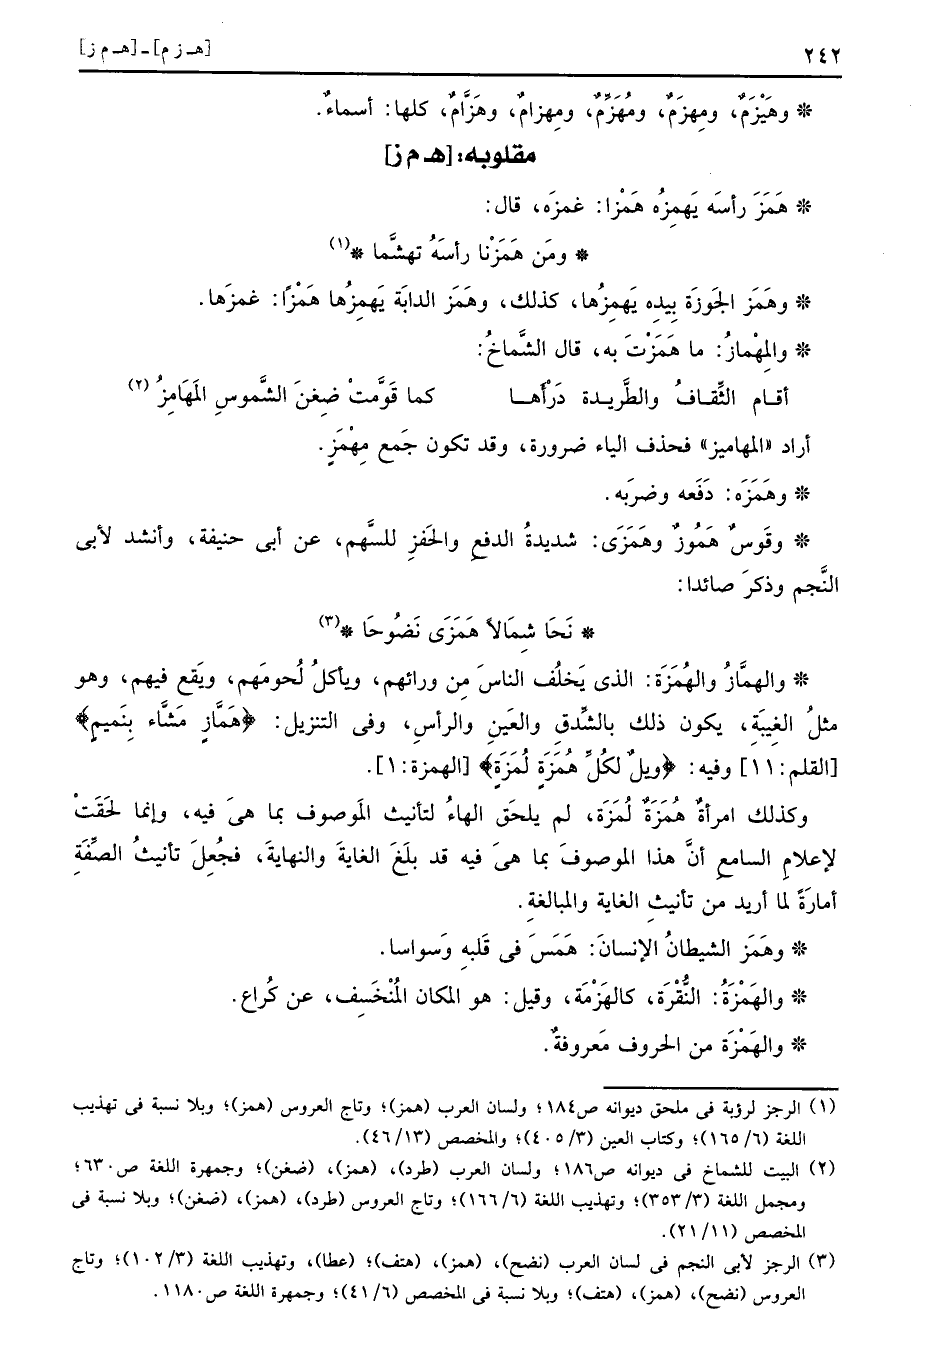 ٢٤٢ [هـ ز م] ـ [هـ م ز]
* وهَيْزَمٌ، ومِهزَمٌ، ومُهَزِّمٌ، ومِهزامٌ، وهَزَّامٌ، كلها: أسماءٌ.
مقلوبه: [هـ م ز]
* هَمَزَ رأسَه يَهمِزُه هَمْزا: غمزَه، قال:
* ومَن هَمَزْنا رأسَهُ تهشَّما *(١)
* وهَمَز الجَوزَة بيدِه يَهمِزُها، كذلك، وهَمَز الدابَة يَهمِزُها هَمْزًا: غمزَها.
* والمِهْمازُ: ما هَمَزْتَ به، قال الشَّماخُ:
أقام الثِّقافُ والطَّريدة دَرْأَها كما قَوَّمتْ ضِغنَ الشَّموسِ المَهَامِزُ (٢)
أراد «المهاميز» فحذف الياء ضرورة، وقد تكون جَمع مِهْمَزٍ.
* وهَمَزَه: دَفَعه وضرَبه.
* وقَوسٌ هَمُوزٌ وهَمَزَى: شديدةُ الدفعِ والحَفزِ للسَّهم، عن أبى حنيفة، وأنشد لأبى
النَّجم وذكرَ صائدا:
* نَحَا شِمَالاً هَمَزَى نَضُوحَا *(٣)
* والهمَّازُ والهُمَزَة: الذى يَخلُف الناسَ مِن ورائهم، ويأكلُ لُحومَهم، ويَقع فيهم، وهو
مثلُ الغِيبَة، يكون ذلك بالشِّدقِ والعَينِ والرأس، وفى التنزيل: ﴿هَمَّازٍ مَشَّاء بنَميم﴾
[القلم:١١] وفيه: ﴿ويلٌ لكُلِّ هُمَزَةٍ لُمَزَةٍ﴾ [الهمزة:١].
وكذلك امرأةٌ هُمَزَةٌ لُمَزَة، لم يلحَق الهاءُ لتأنيث المَوصوف بما هىَ فيه، وإنما لحَقَتْ
لإعلامِ السامعِ أنَّ هذا الموصوفَ بما هىَ فيه قد بلَغَ الغايةَ والنهايةَ، فجُعلَ تأنيثُ الصِّفَةِ
أمارَةً لما أريد من تأنيثِ الغاية والمبالغةِ.
* وهَمَز الشيطانُ الإنسانَ: هَمَسَ فى قَلبِه وَسواسا.
* والهَمْزَةُ: النُّقْرَة، كالهَزْمَة، وقيل: هو المكان المُنْخَسِف، عن كُراع.
* والهَمْزَة من الحروف مَعروفةٌ.
(١) الرجز لرؤبة فى ملحق ديوانه ص١٨٤؛ ولسان العرب (همز)؛ وتاج العروس (همز)؛ وبلا نسبة فى تهذيب
اللغة (٦/١٦٥)؛ وكتاب العين (٣/٤٠٥)؛ والمخصص (١٣/٤٦).
(٢) البيت للشماخ فى ديوانه ص١٨٦؛ ولسان العرب (طرد)، (همز)، (ضغن)؛ وجمهرة اللغة ص٦٣٠؛
ومجمل اللغة (٣/٣٥٣)؛ وتهذيب اللغة (٦/١٦٦)؛ وتاج العروس (طرد)، (همز)، (ضغن)؛ وبلا نسبة فى
المخصص (١١/٢١).
(٣) الرجز لأبى النجم فى لسان العرب (نضح)، (همز)، (هتف)؛ (عطا)، وتهذيب اللغة (٣/١٠٢)؛ وتاج
العروس (نضح)، (همز)، (هتف)؛ وبلا نسبة فى المخصص (٦/٤١)؛ وجمهرة اللغة ص١١٨٠.